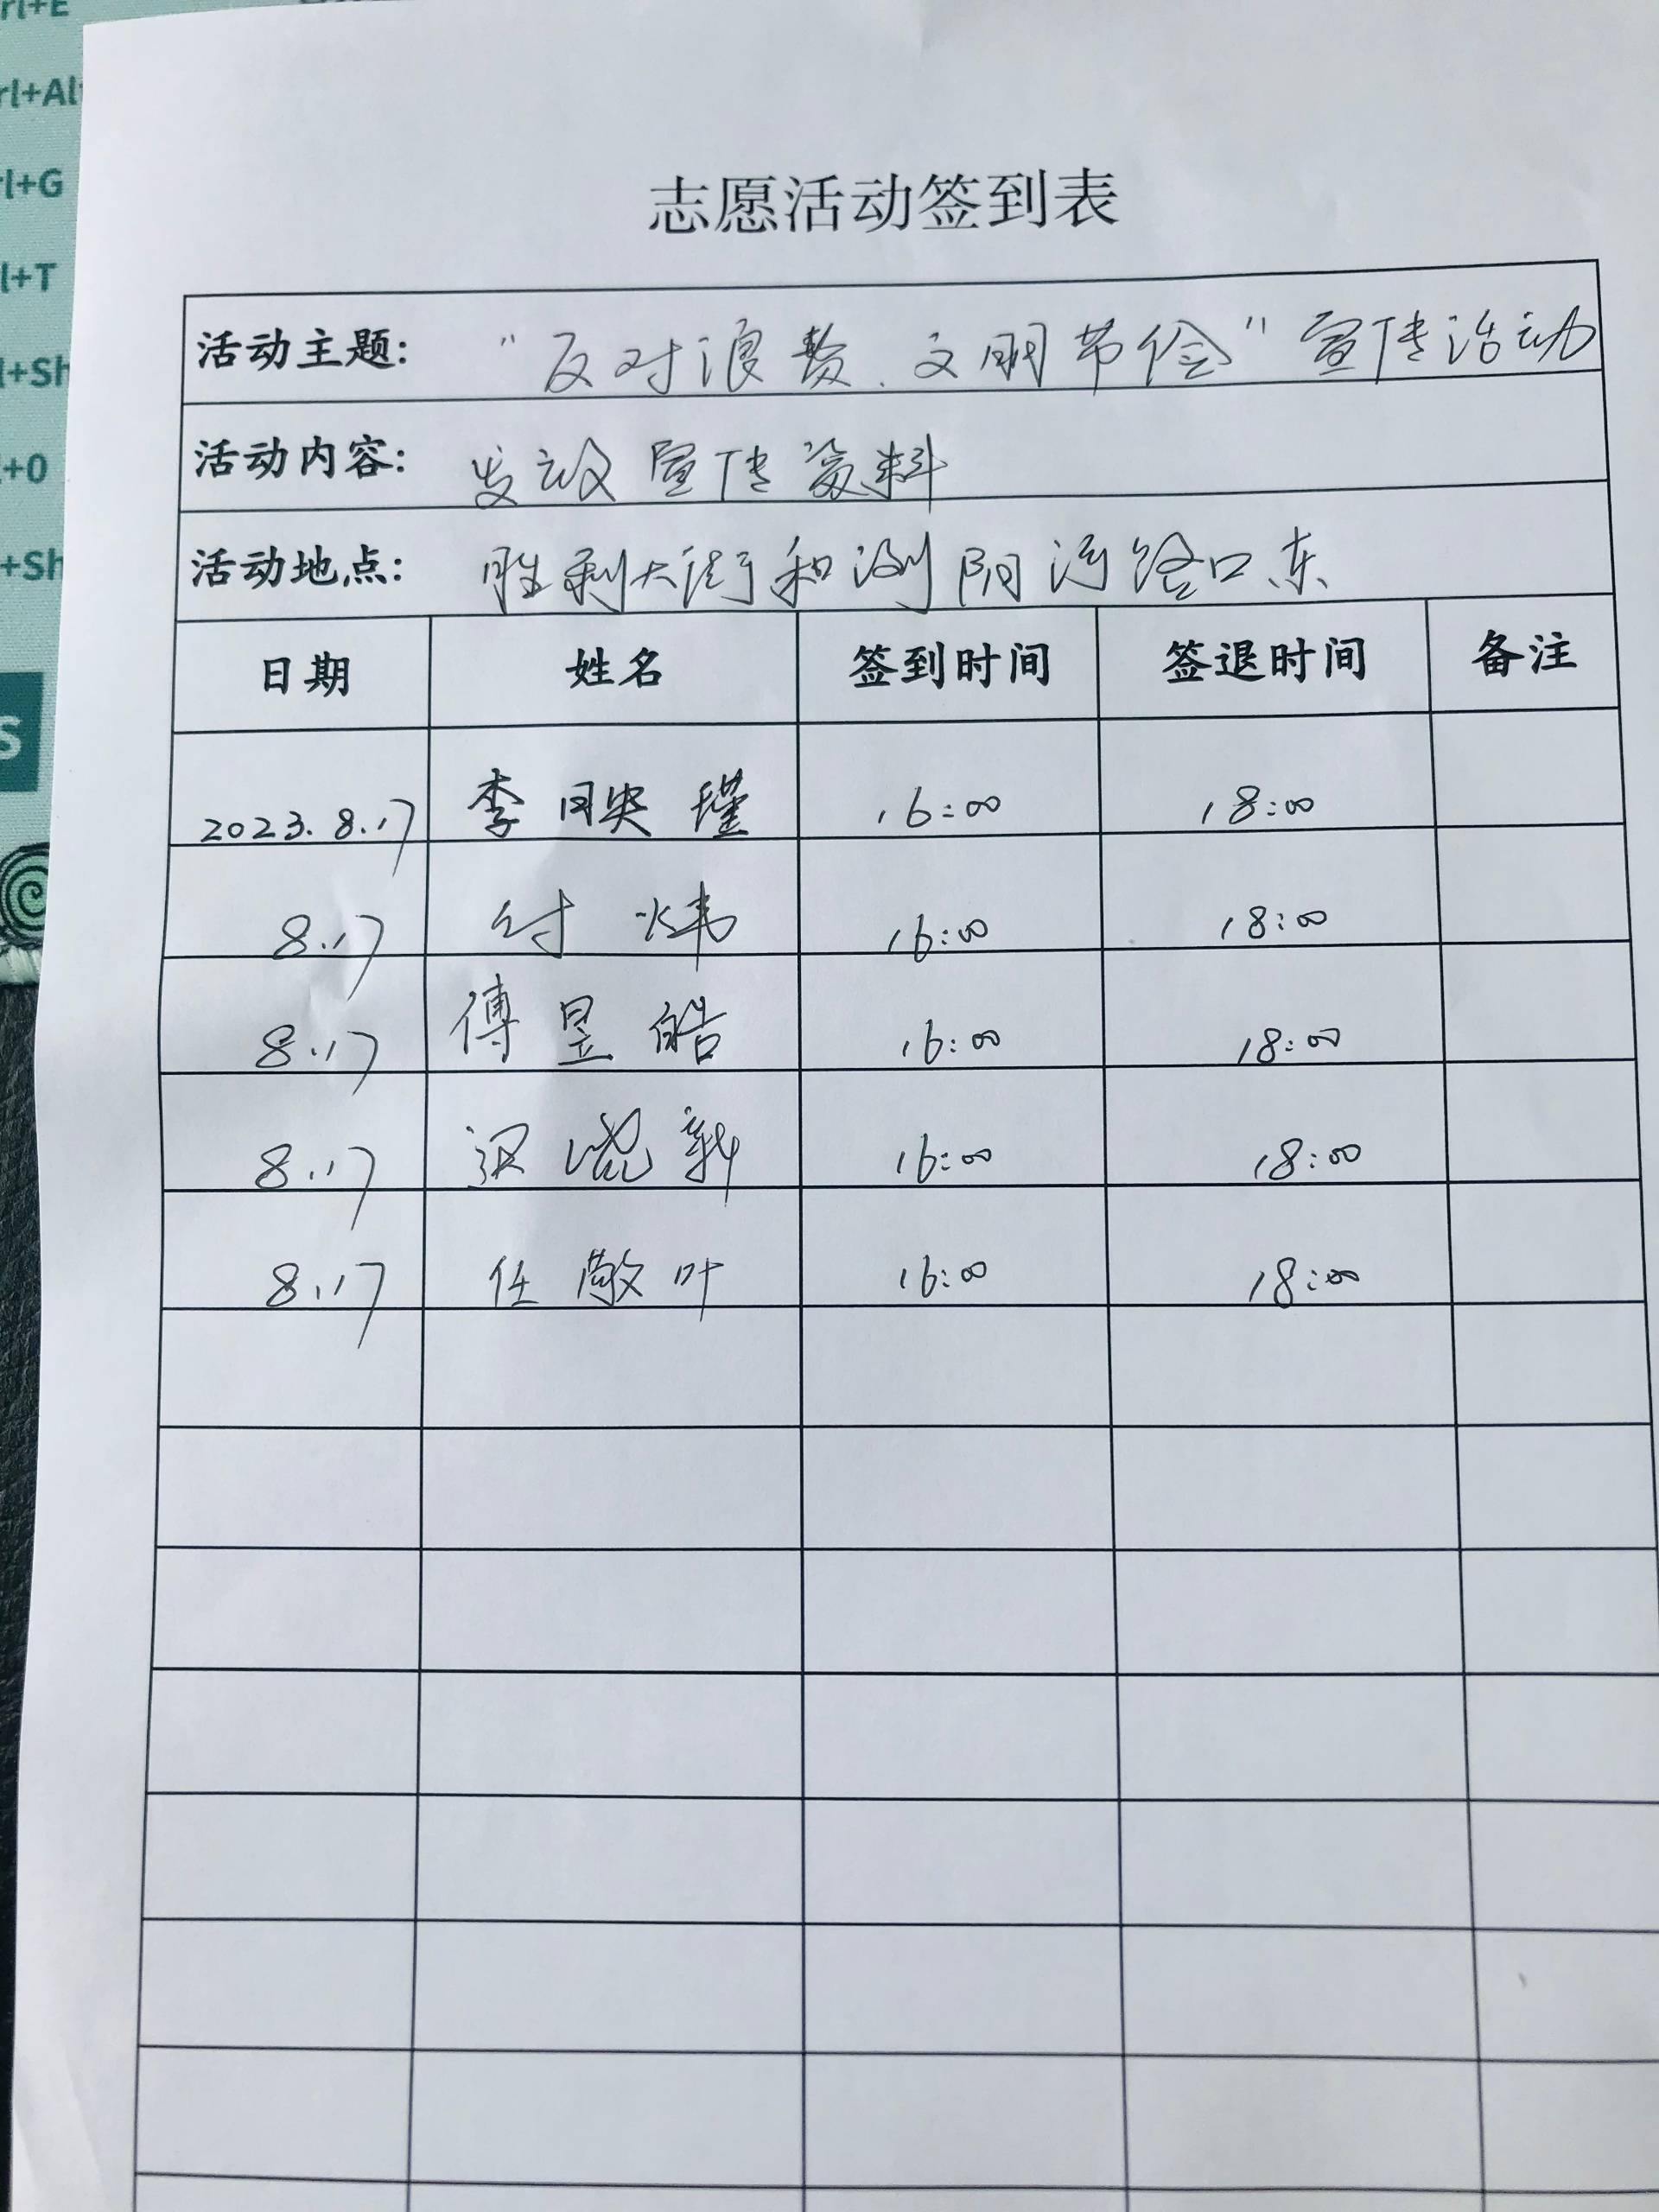 rl+E
rl+Al
rl+G
l+T
l+Sh
+0
+Sh
S
志愿活动签到表
活动主题: "反对浪费、文明节俭"宣传活动
活动内容: 发放宣传资料
活动地点: 胜利大街和浏阳河路口东
日期 姓名 签到时间 签退时间 备注
2023.8.17 李 瑾 16:00 18:00
8.17 付炜 16:00 18:00
8.17 傅昱皓 16:00 18:00
8.17 新 16:00 18:00
8.17 任敬叶 16:00 18:00